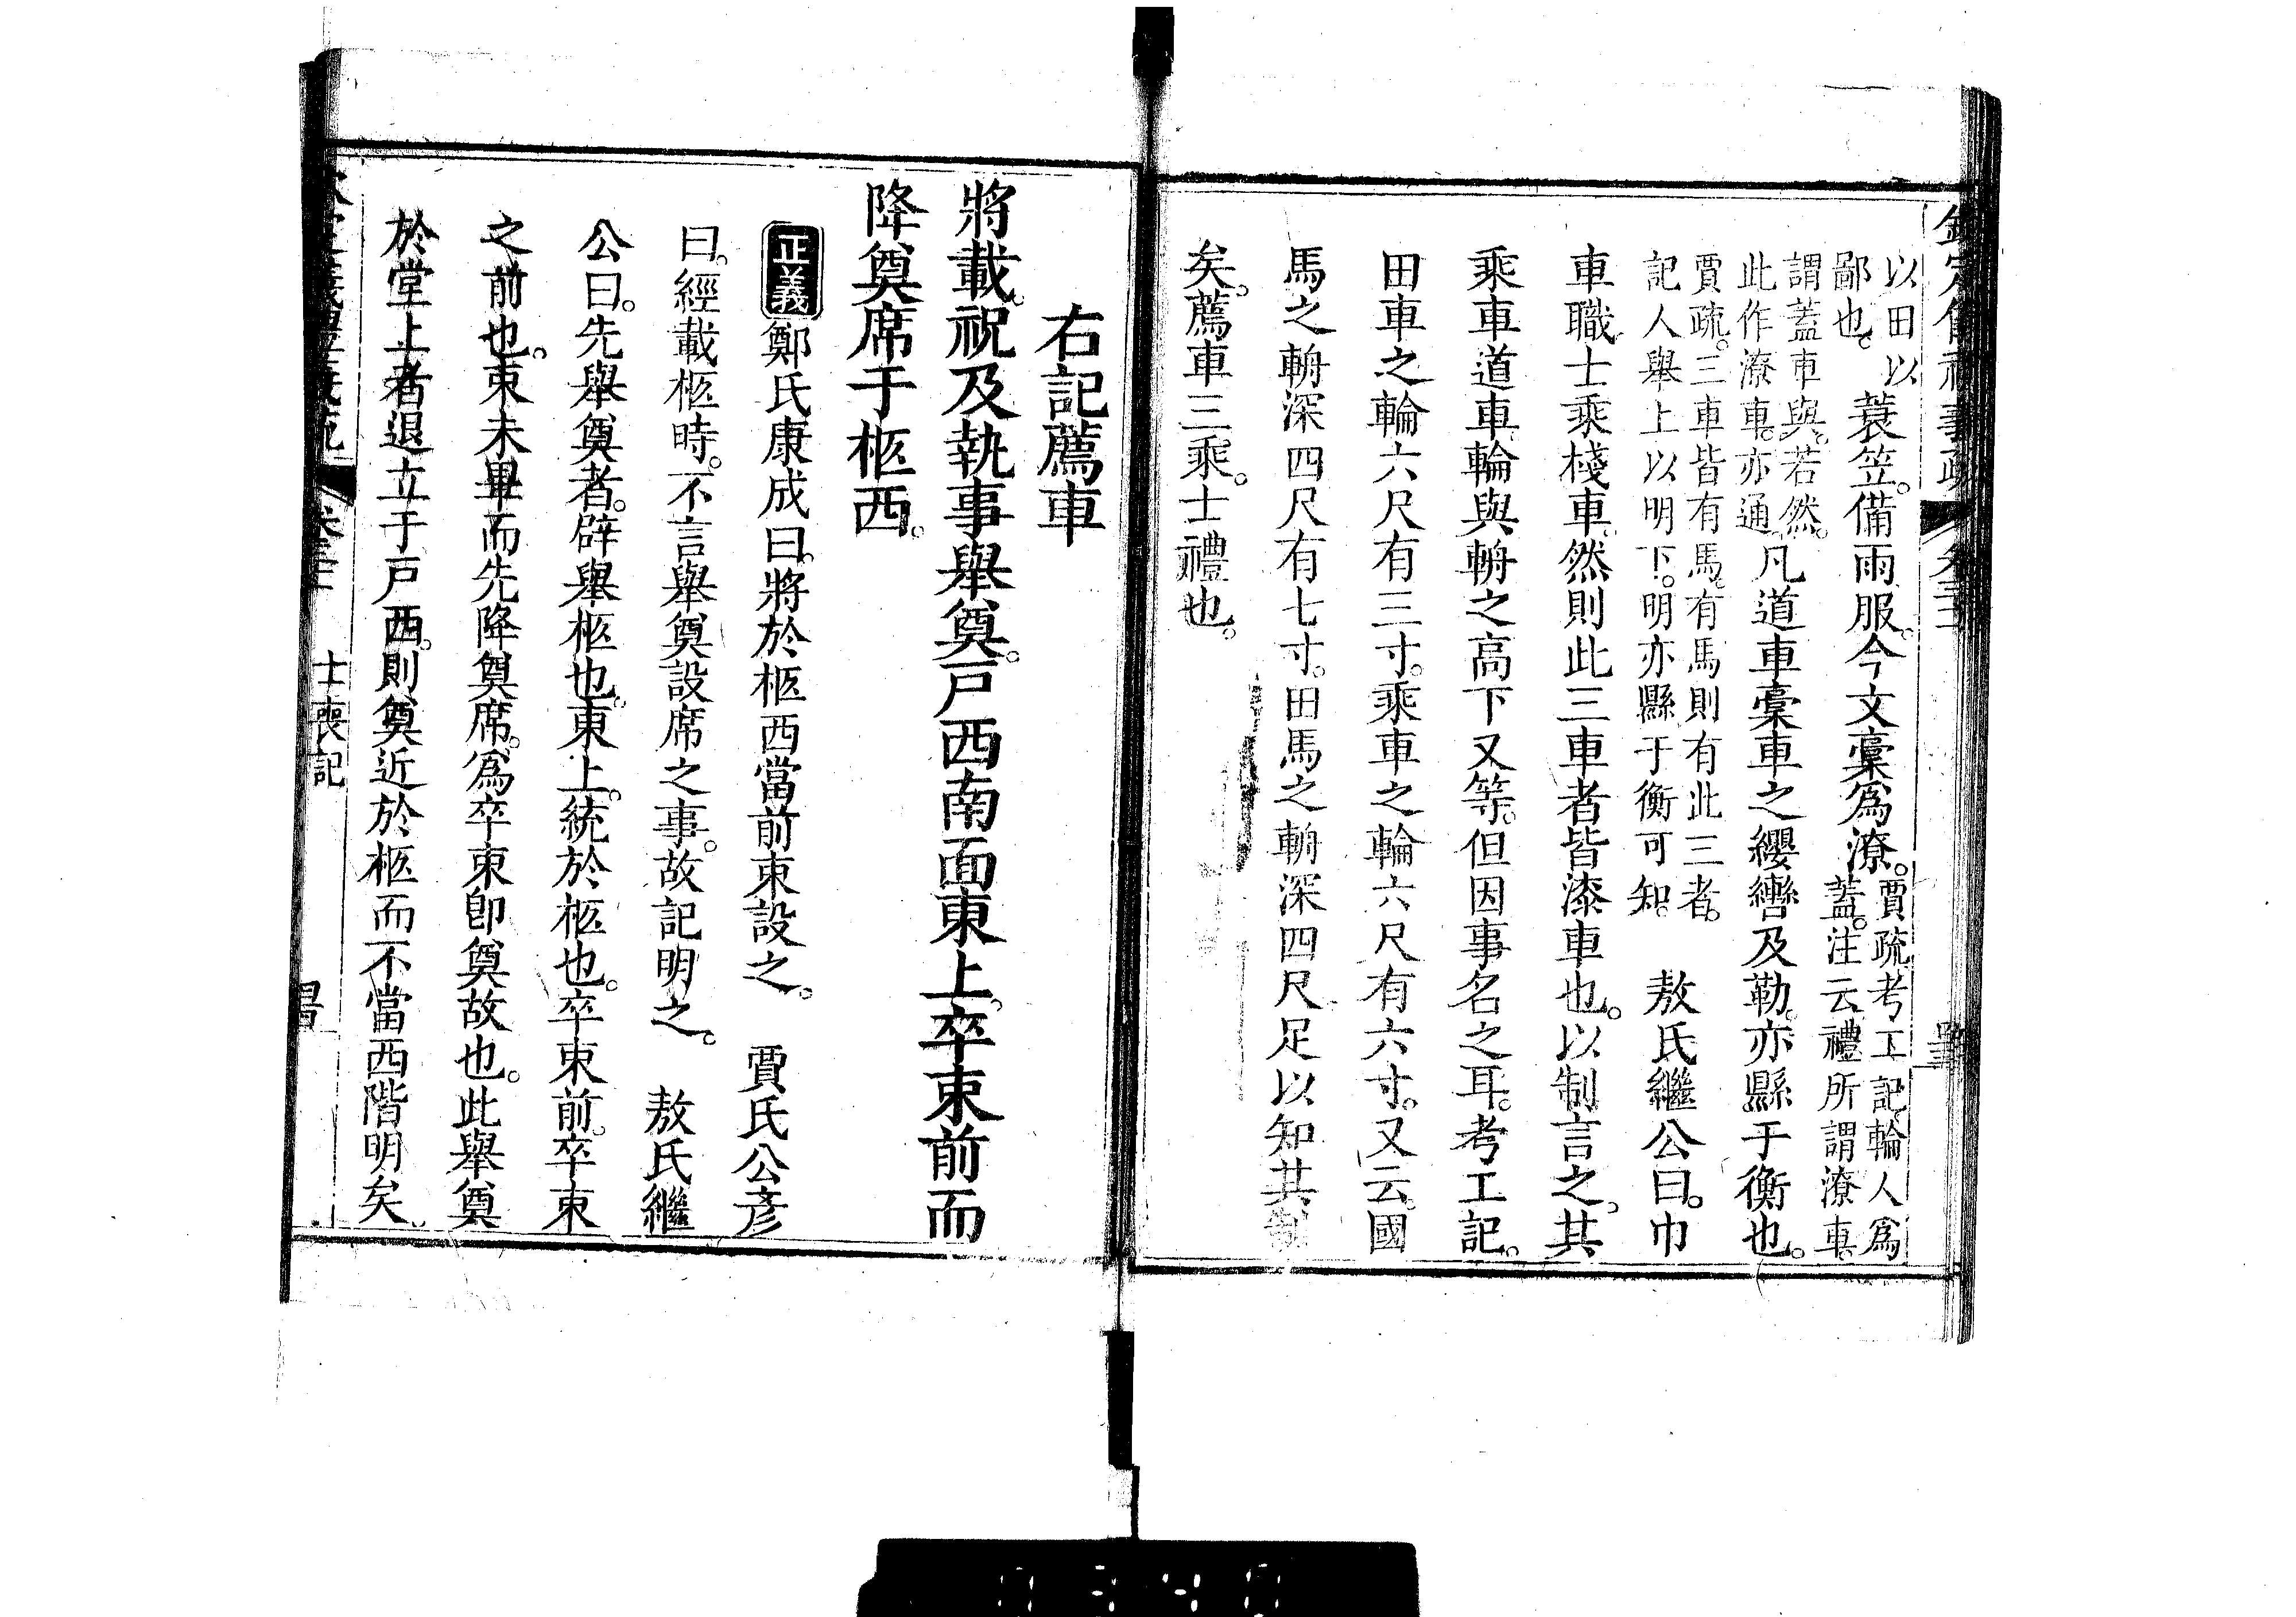 以田以
鄙也。
蓑笠。備雨服。今文稾爲潦。
賈疏。考工記。輪人爲
蓋。注云。禮所謂潦車。
謂蓋車與。若然。
此作潦車。亦通。
凡道車稾車之纓轡及勒。亦縣于衡也。
賈疏。三車皆有馬。有馬則有此三者。
記人舉上以明下。明亦縣于衡可知。
敖氏繼公曰。巾
車職士乘棧車。然則此三車者皆漆車也。以制言之。其
乘車道車輪與輈之高下又等。但因事名之耳。考工記。
田車之輪六尺有三寸。乘車之輪六尺有六寸。又云。國
馬之輈深四尺有七寸。田馬之輈深四尺。足以知其制
矣。薦車三乘。士禮也。
右記薦車
將載。祝及執事舉奠。戶西南面東上。卒束前而
降奠席于柩西。
正義 鄭氏康成曰。將於柩西當前束設之。 賈氏公彥
曰。經載柩時。不言舉奠設席之事。故記明之。 敖氏繼
公曰。先舉奠者。辟舉柩也。東上。統於柩也。卒束前。卒束
之前也。束未畢而先降奠席。爲卒束卽奠故也。此舉奠
於堂上者退立于戶西。則奠近於柩而不當西階明矣
士喪記